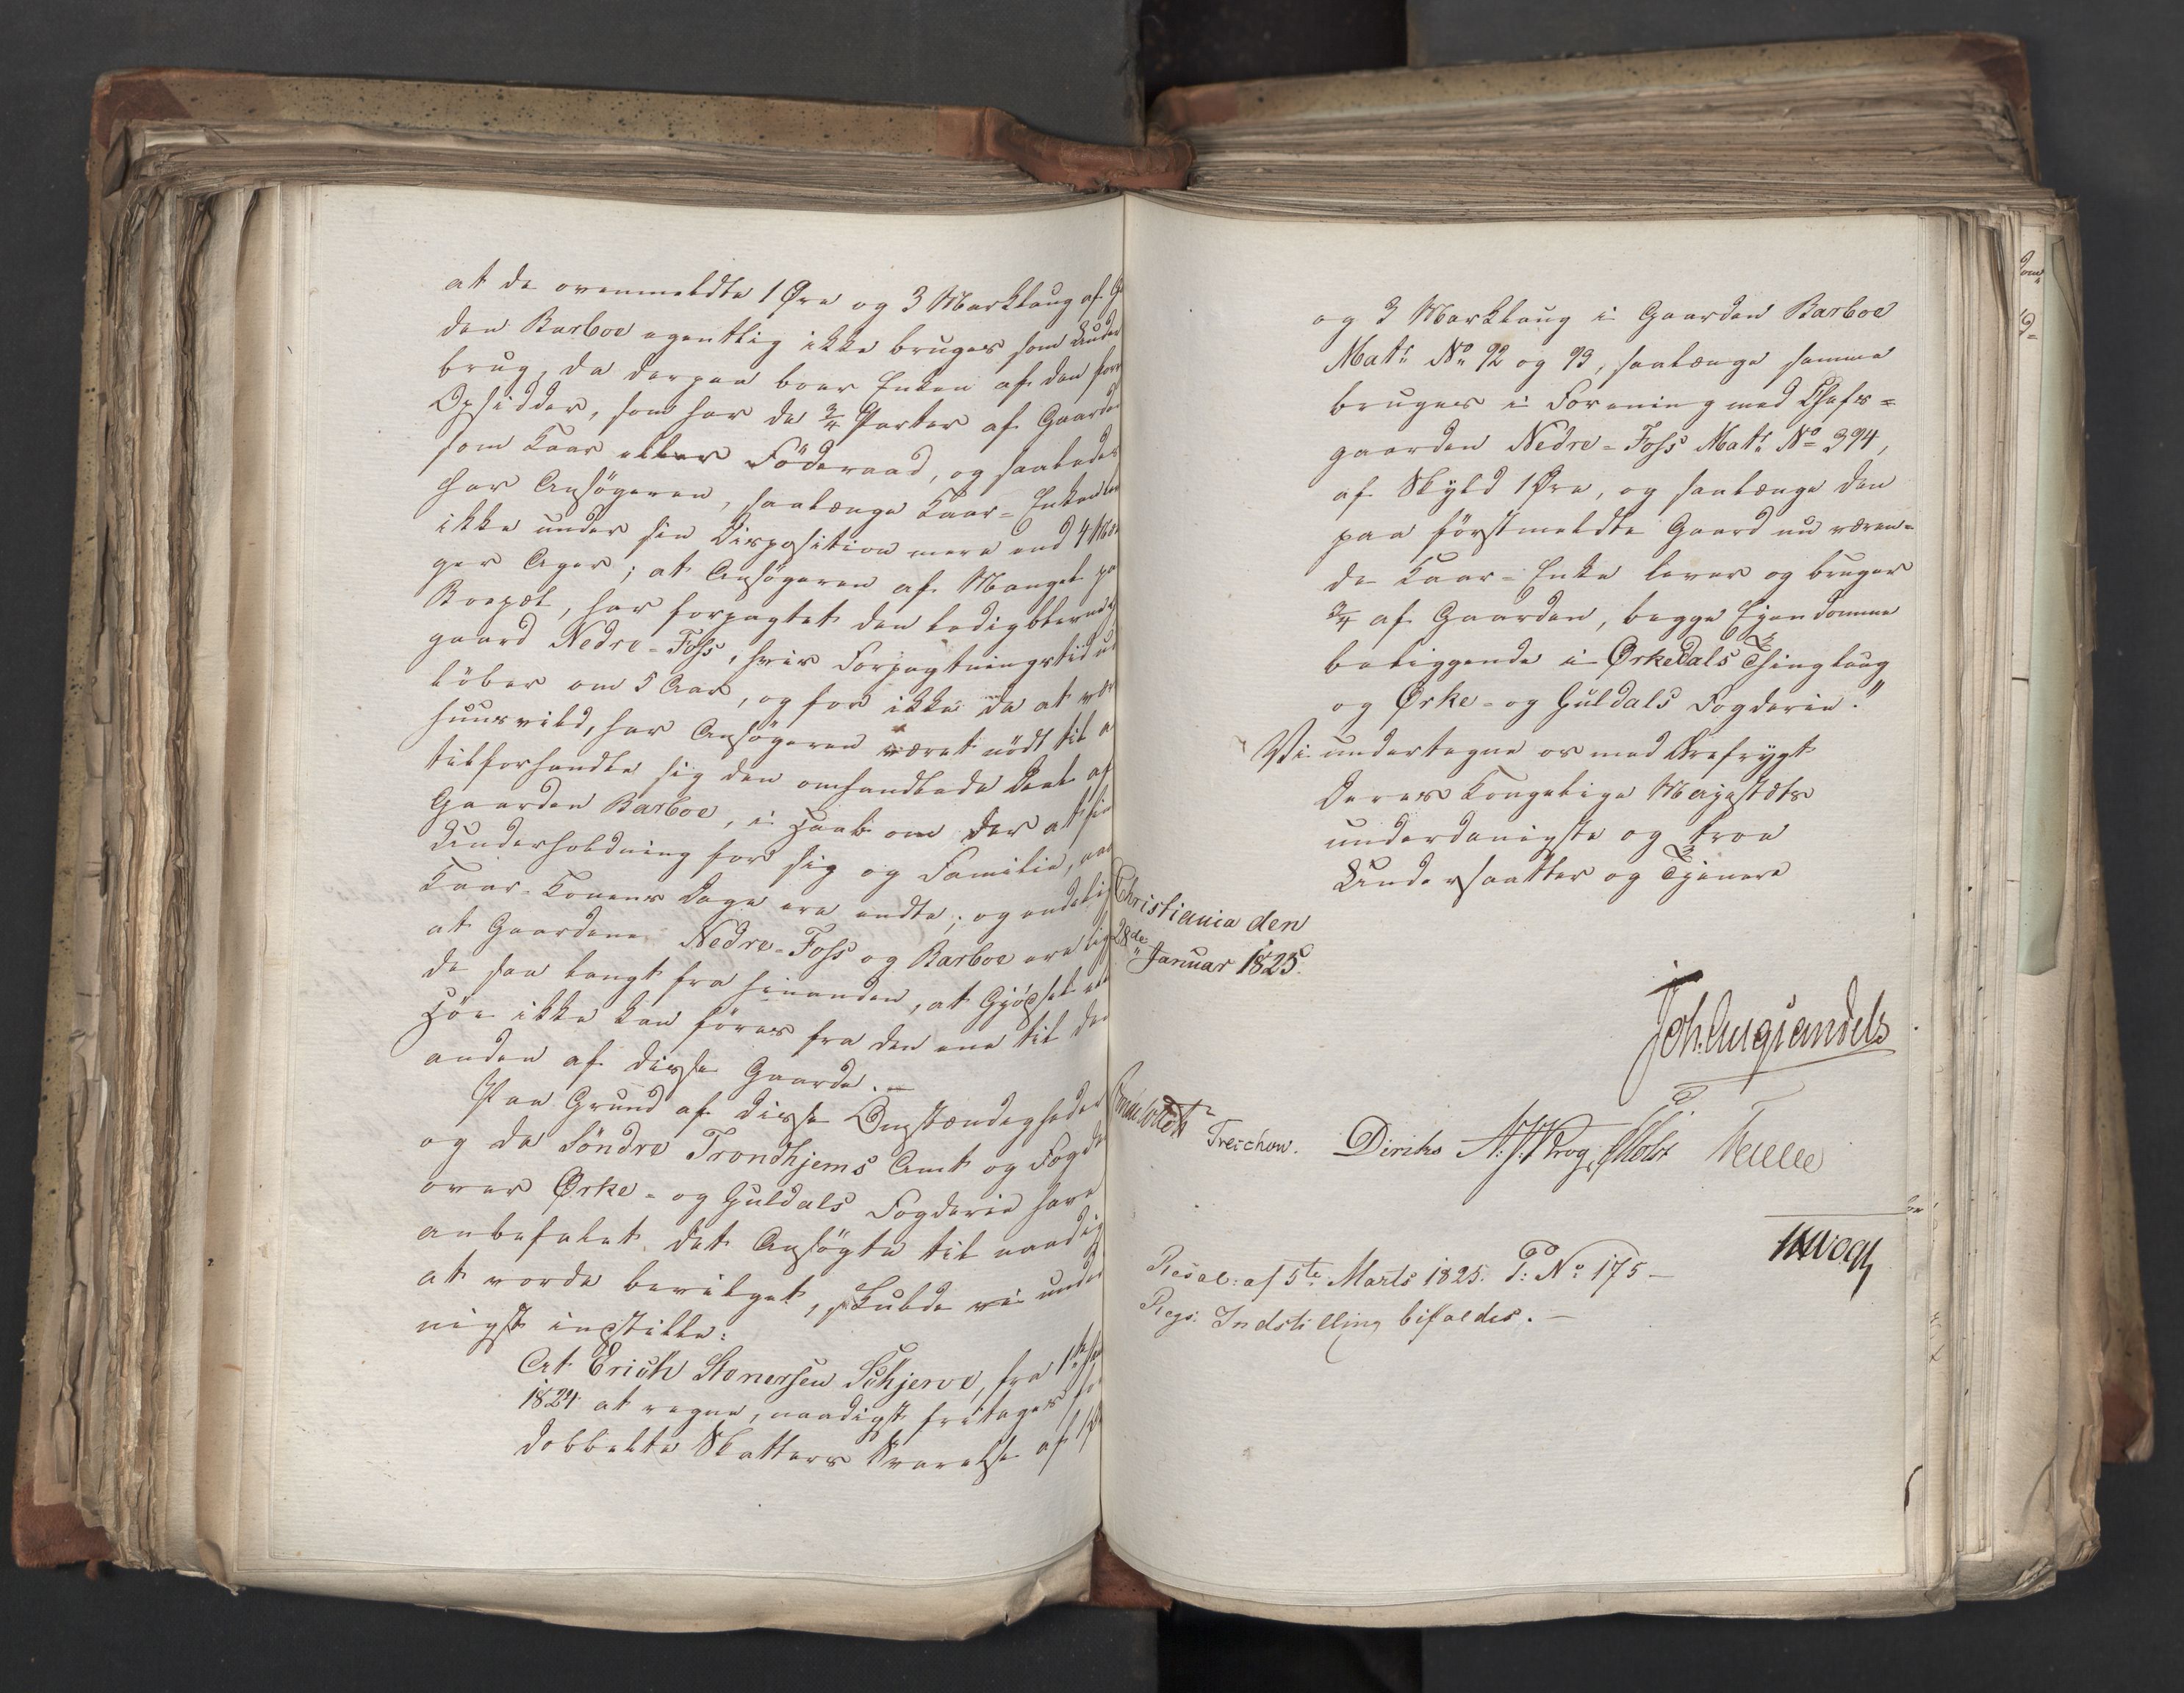 at de ovenmeldte 1 Øre og 3 Marklaug af
den Barboe egentlig ikke bruges som Under
brug, da derpaa boer Enken af den
Opsidder, som har de 3/4 Parter af Gaarden
som Kaar eller Föderaad, og saaledes
har Ansögeren, saalænge Kaar-Enken
ikke under sin Disposition mere end 4
ger Ager; at Ansögeren af Mangel paa
Boepæl, har forpagtet den
gaard Nedre-Foss, hvis Forpagtningstid ud
löber om 5 Aar, og for ikke da at være
huusvild, har Ansögeren været nödt til at
tilforhandle sig den omhandlede Deel af
Gaarden Barboe, i Haab om der at
Underholdning for sig og Familie, naar
Kaar-Konens Dage ere endte; og endelig
at Gaardene Nedre-Foss og Barboe ere lig
de saa langt fra hinanden, at Gjödsel eller
Höe ikke kan föres fra den ene til den
anden af disse Gaarde.—
Paa Grund af disse Omstændigheder
og da Söndre Trondhjems Amt og Fogden
over Ørke- og Guldals Fogderie have
anbefalet det Ansögte til naadigst
at vorde bevilget, skulde vi under
nigst indstille:
At Erich Stenersen Schjerve, fra 1te
1824 at regne, naadigst fritages for
dobbelte Skatters Svarelse af 1
og 3 Marklaug i Gaarden Barboe
Matr. No 92 og 93, saalænge samme
bruges i Forening med Chefs=
gaarden Nedre-Foss Matr. No 394,
af Skyld 1 Øre, og saalænge den
paa förstmeldte Gaard nu væren=
de Kaar-Enke lever og bruger
3/4 af Gaarden, begge Eiendomme
beliggende i Ørkedals Thinglaug
og Ørke- og Guldals Fogderie."
Vi undertegne os med Ærefrygt
Deres Kongelige Majestæts
underdanigste og troe
Undersaatter og Tjenere
Christiania den
28de Januar 1825.
Joh. Aug. Sandels
Treschow. Diriks Motzfeldt
Resol: af 5te Marts 1825. P: No 175 —
Regs: Indstilling bifaldes. —